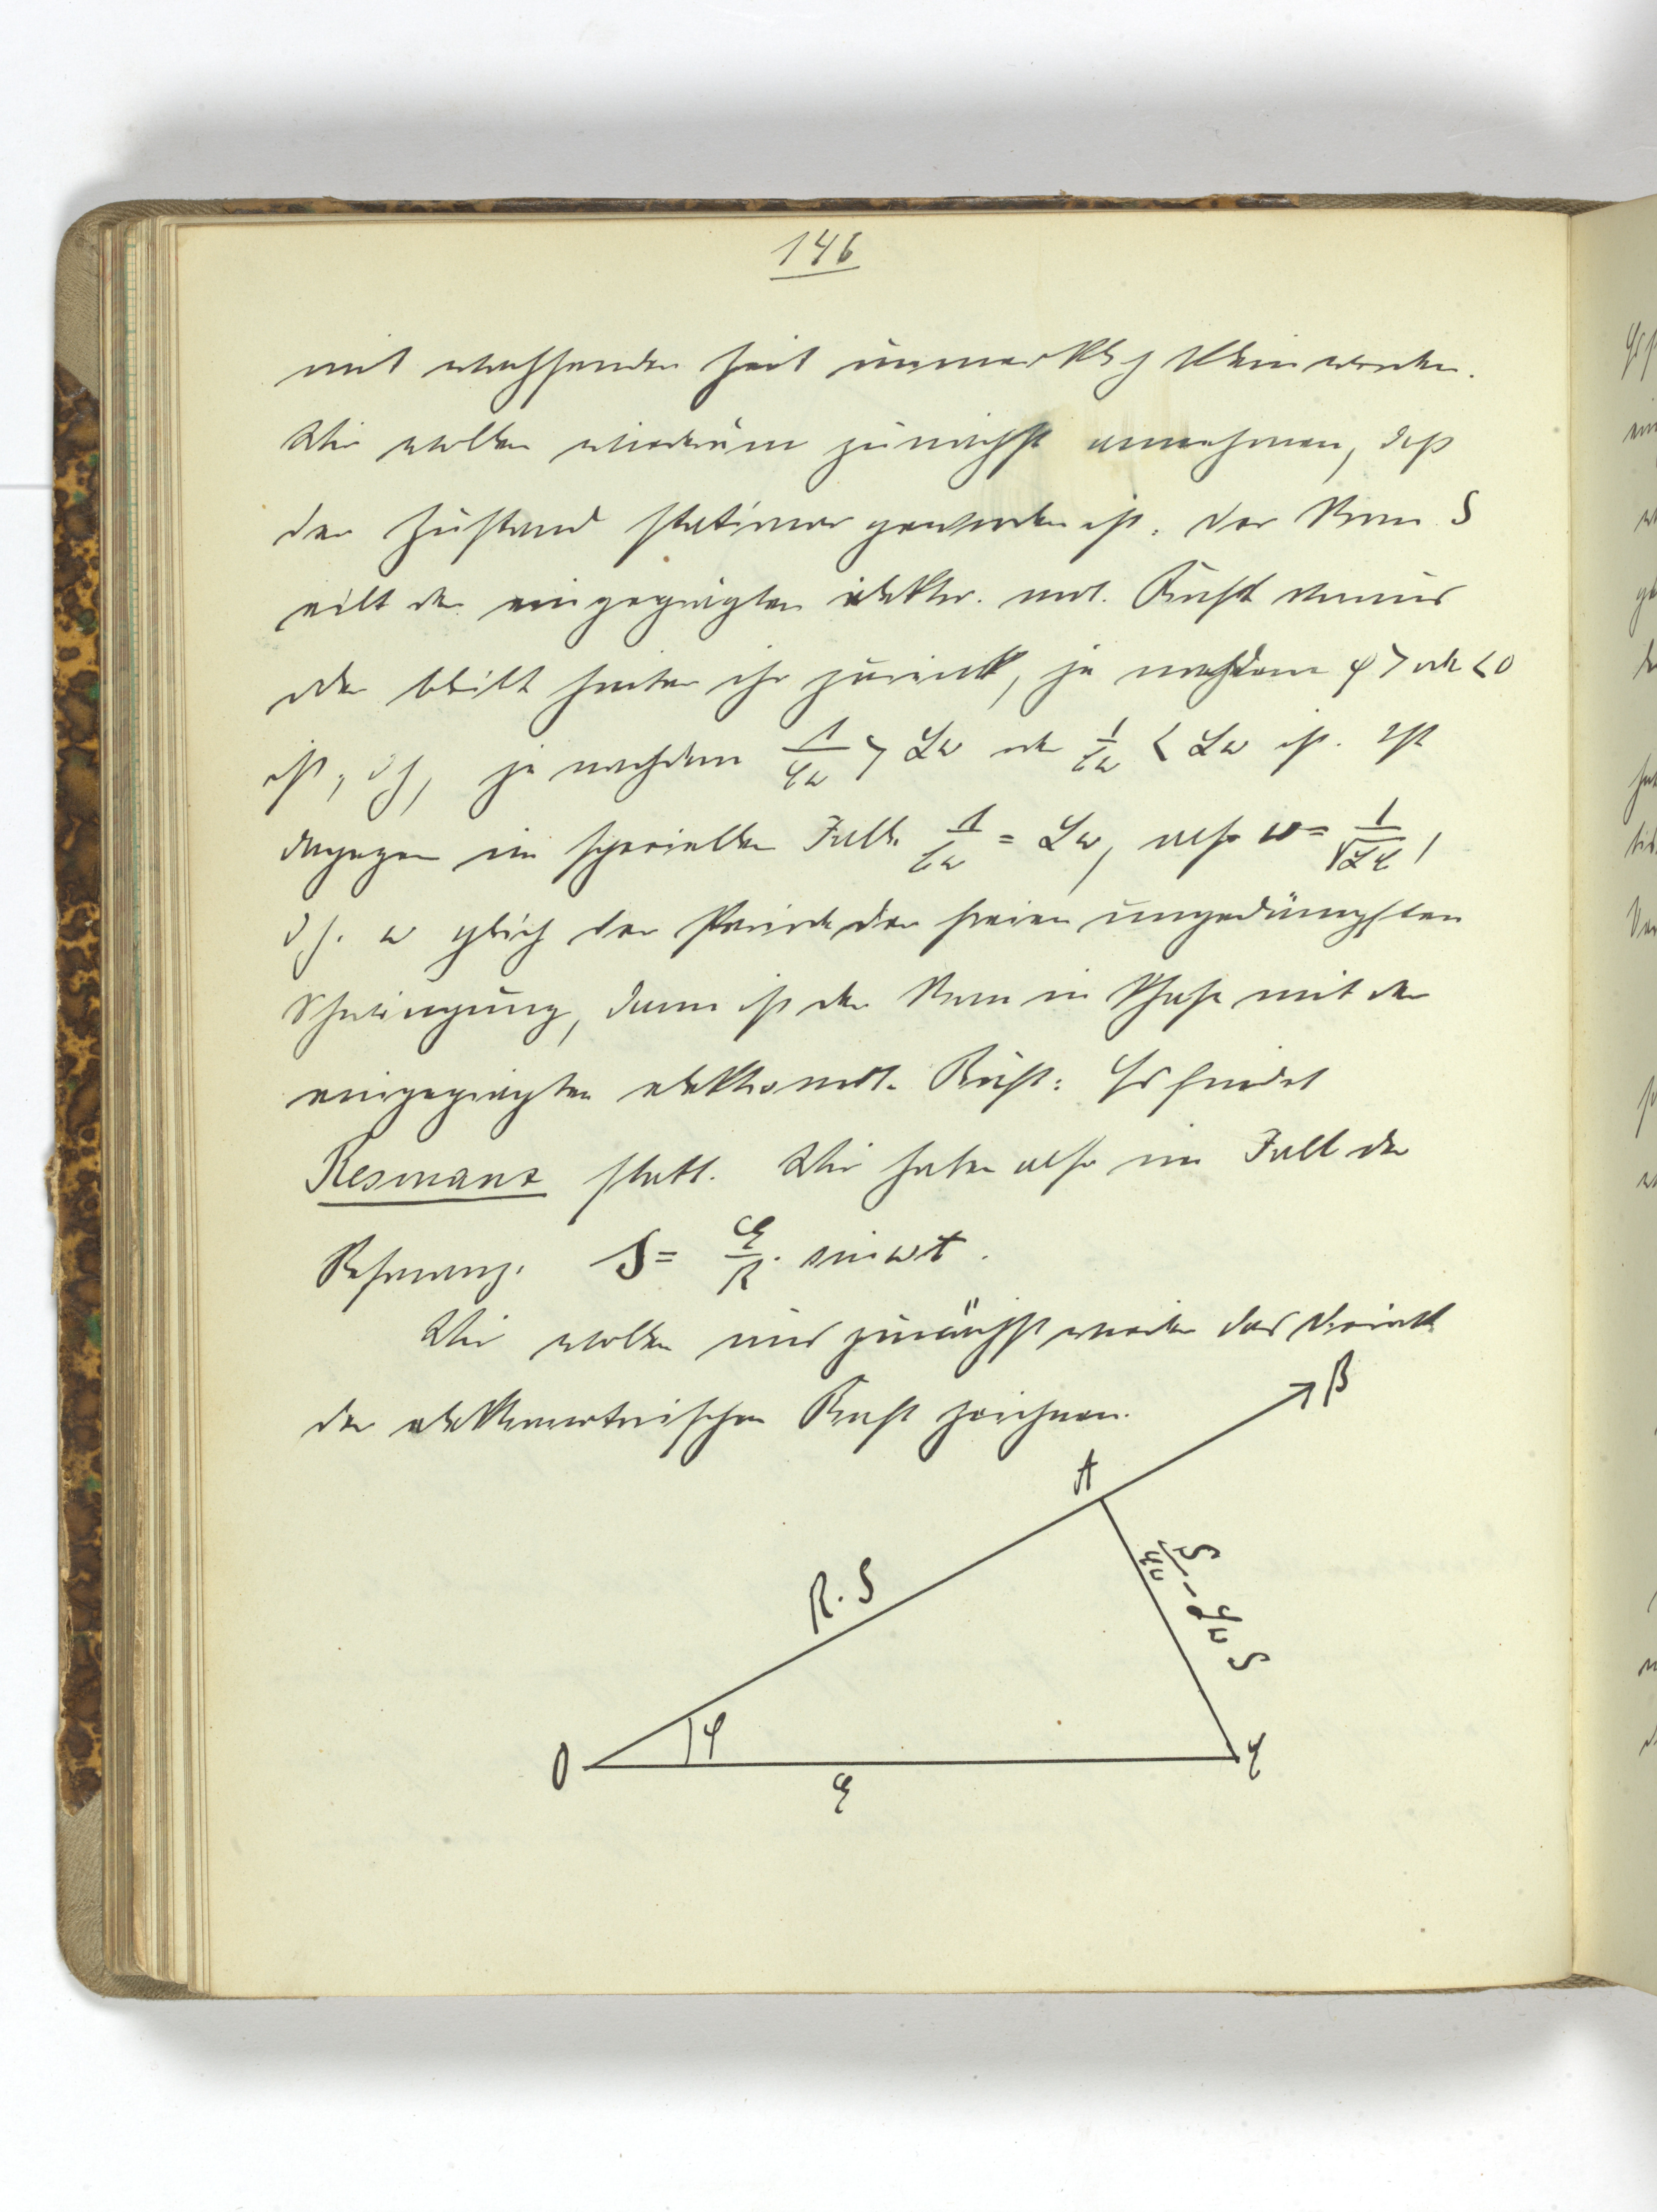 146
mit wachsender Zeit unmerklich klein werden.
Wir wollen wiederum zunächst annehmen, daß
der Zustand stationär geworden ist. Der Strom S
eilt der eingeprägten elektr. mot. Kraft voraus
oder bleibt hinter ihr zurück, je nachdem φ > oder < 0
ist, d. h., je nachdem 1/Cω > Lω oder 1/Cω < Lω ist. Ist
dagegen im speziellen Falle 1/Cω = Lω, also ω = 1/√LC,
d. h. ω gleich der Periode der freien ungedämpften
Schwingung, dann ist der Strom in Phase mit der
eingeprägten elektromot. Kraft: Es findet
Resonanz statt. Wir haben also im Fall der
Resonanz: S = E/R · sin ωt.
Wir wollen uns zunächst wieder das Dreieck
der elektromotorischen Kraft zeichnen.
B
A
R·S
S/Cω - LωS
φ
O
C
E